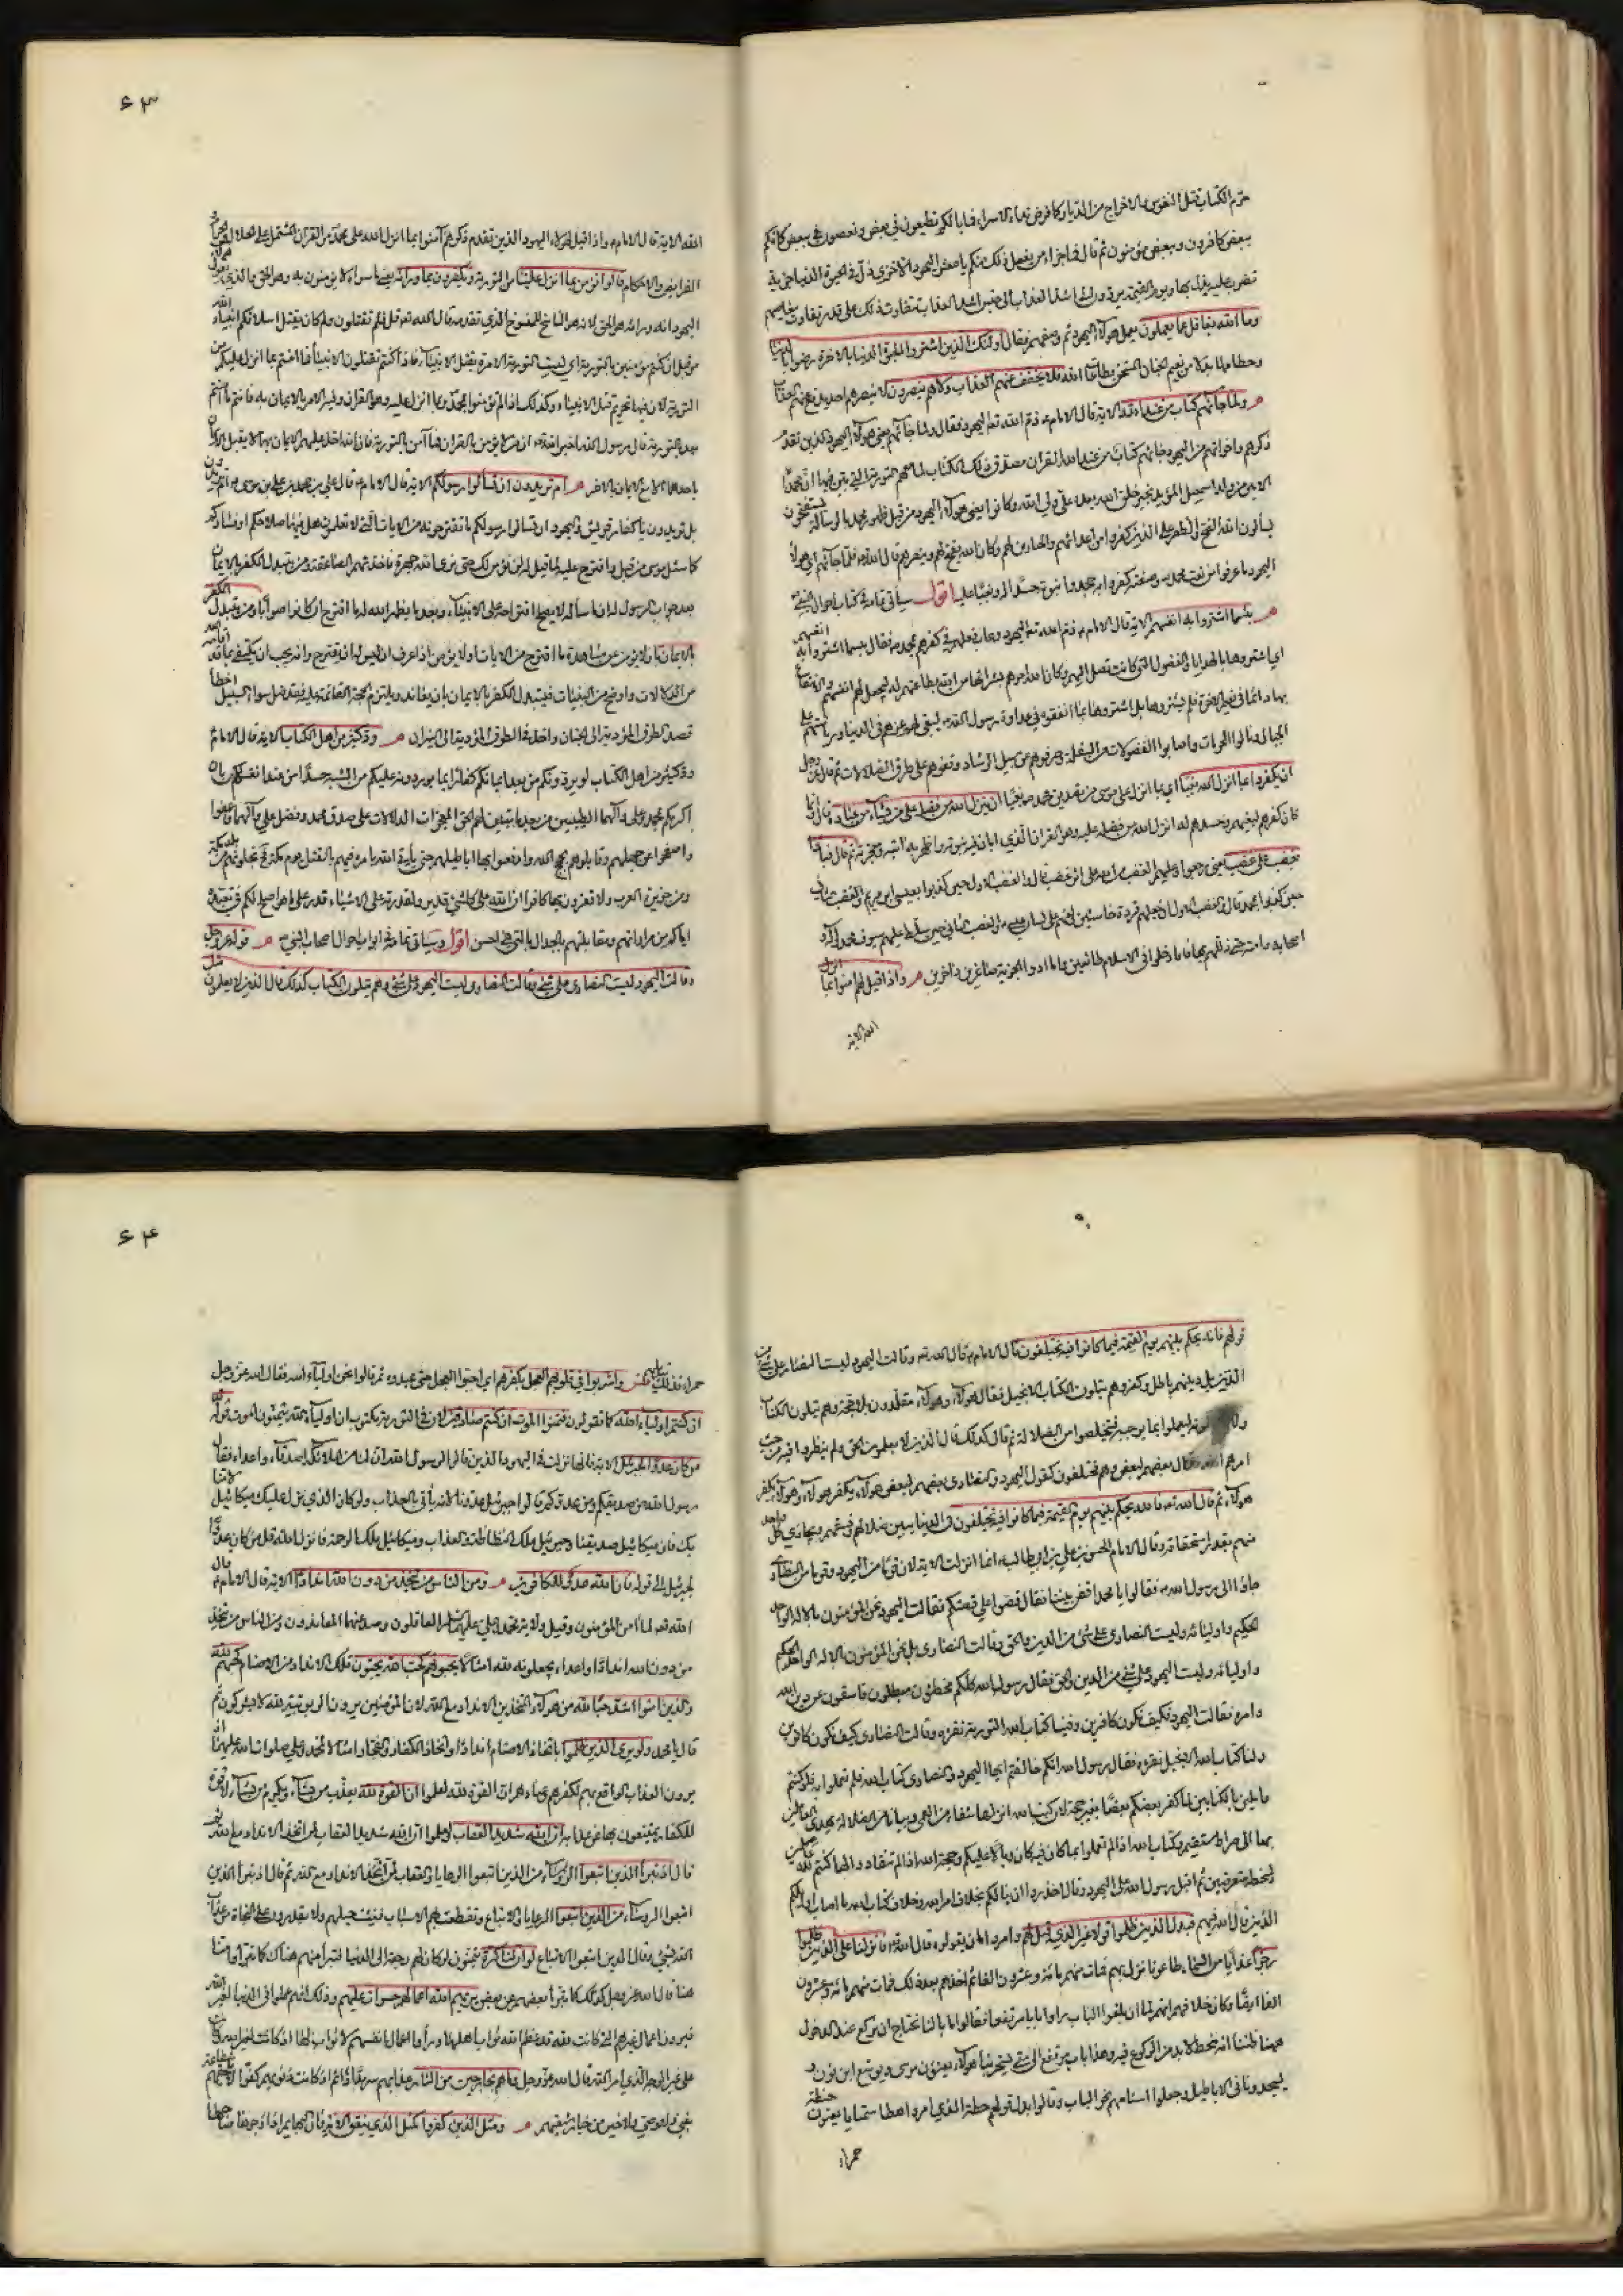 حرم الكتاب قتل النفوس والاخراج من الديار كما فرض فداء الاسراء فما بالكم تطيعون في بعض وتعصون في بعض كانكم
ببعض كافرون وببعض مؤمنون ثم قال فما جزاء من يفعل ذلك منكم يا معشر اليهود الا خزي ذل في الحيوة الدنيا جزية
تضرب عليه يذل بها ويوم القيمة يردون الى اشد العذاب الى جنس اشد العذاب يتفاوت ذلك على قدر تفاوت معاصيهم
وما الله بغافل عما يعملون يعمل هؤلاء اليهود ثم وصفهم فقال اولئك الذين اشتروا الحيوة الدنيا بالاخرة رضوا بالدنيا
وحطامها بدلا من نعيم الجنان المستحق بطاعة الله فلا يخفف عنهم العذاب ولا هم ينصرون لا ينصرهم احد يدفع عنهم العذاب
ولما جائهم كتاب من عند الله الاية قال الامام ذم الله تعه اليهود فقال ولما جائهم يعني هؤلاء اليهود الذين تقدم
ذكرهم واخوانهم من اليهود جائهم كتاب من عند الله القران مصدق ذلك الكتاب لما معهم التورية التي بين فيها ان محمدا
الامي من ولد اسمعيل المؤيد بخير خلق الله بعده علي ولي الله وكانوا يعني هؤلاء اليهود من قبل ظهور محمد بالرسالة يستفتحون
يسألون الله الفتح والظفر على الذين كفروا من اعدائهم والمناوين لهم وكان الله يفتح لهم وينصرهم قال الله فلما جائهم اي هؤلاء
اليهود ما عرفوا من نعت محمد وصفته كفروا به جحدوا نبوته حسدا له وبغيا عليه اقول سياتي تمامه في كتاب احوال النبي
بئسما اشتروا به انفسهم الاية قال الامام ذم الله تعه اليهود وعاب فعلهم في كفرهم بمحمد فقال بئسما اشتروا به انفسهم
اي اشتروها بالهدايا والفضول التي كانت تصل اليهم وكان الله امرهم بشرائها من الله بطاعتهم له ليجعل لهم انفسهم والانتفاع
بها دائما في نعيم الاخرة فلم يشتروها بل اشتروها بما انفقوه في عداوة رسول الله ليبقى لهم عزهم في الدنيا ورياستهم على
الجهال وينالوا المحرمات واصابوا الفضولات من السفلة وصرفوهم عن سبيل الرشاد ووقفوهم على طرق الضلالات ثم قال عز وجل
ان يكفروا بما انزل الله بغيا اي بما انزل على موسى من تصديق محمد بغيا ان ينزل الله من فضله على من يشاء من عباده قال وانما
كان كفرهم لبغيهم وحسدهم له لما انزل الله من فضله عليه وهو القران الذي ابان فيه نبوته واظهر به ايته ومعجزته ثم قال فباؤا
بغضب على غضب يعني رجعوا وعليهم الغضب من الله على اثر غضب قال والغضب الاول حين كذبوا بعيسى ابن مريم والغضب الثاني
حين كذبوا بمحمد قال والغضب الاول ان جعلهم قردة خاسئين ولعنهم على لسان عيسى والغضب الثاني حين سلط عليهم سيوف محمد واله
اصحابه وامته حتى ذللهم بها فاما دخلوا في الاسلام طائعين واما ادوا الجزية صاغرين داخرين واذا قيل لهم امنوا بما انزل
الله الاية
۶۳
الله الاية قال الامام واذا قيل لهؤلاء اليهود الذين تقدم ذكرهم آمنوا بما انزل الله على محمد من القران المشتمل على الحلال والحرام
الفرايض والاحكام قالوا نؤمن بما انزل علينا من التورية ويكفرون بما ورائه يعني ما سواه لا يؤمنون به وهو الحق والذي يقول هؤلاء
اليهود انه ورائه هو الحق لانه هو الناسخ للمنسوخ الذي تقدمه قال الله تعه قل فلم تقتلون ولم كان يقتل اسلافكم انبياء الله
من قبل ان كنتم مؤمنين بالتورية اي ليست التورية الامرة بقتل الانبياء فاذا كنتم تقتلون الانبياء فما امنتم بما انزل عليكم من
التورية لان فيها تحريم قتل الانبياء وكذلك اذا لم تؤمنوا بمحمد وبما انزل عليه وهو القران وفيه الامر بالايمان به فانتم ما آمنتم
بعد بالتورية قال رسول الله اخبر الله ان من لا يؤمن بالقران فما آمن بالتورية فان الله اخذ عليهم الايمان بهما لا يقبل الايمان
باحدهما الا مع الايمان بالاخر ام تريدون ان تسألوا رسولكم الاية قال الامام قال علي بن محمد بن علي بن موسى ام تريدون
بل تريدون يا كفار قريش واليهود ان تسألوا رسولكم ما تقترحونه من الايات التي لا تعلمون هل فيها صلاحكم او فسادكم
كما سئل موسى من قبل واقترح عليه لما قيل له لن نؤمن لك حتى نرى الله جهرة فاخذتهم الصاعقة ومن يتبدل الكفر بالايمان
بعد جواب الرسول له ان ما سأله لا يصلح اقتراحه على الانبياء وبعد ما يظهر الله له ما اقترح ان كان صوابا ومن يتبدل الكفر
بالايمان بان لا يؤمن عن مشاهدة ما اقترح من الايات او لا يؤمن اذا عرف ان ليس له ان يقترح وانه يجب ان يكتفي بما اقامه الله
من الدلالات واوضح من البينات فيتبدل الكفر بالايمان بان يعاند ولا يلتزم الحجة القائمة عليه فقد ضل سواء السبيل اخطأ
قصد الطرق المؤدية الى الجنان واخذ في الطرق المؤدية الى النيران ود كثير من اهل الكتاب الاية قال الامام
ود كثير من اهل الكتاب لو يردونكم من بعد ايمانكم كفارا بما يوردونه عليكم من الشبه حسدا من عند انفسهم بان
اكرمكم بمحمد وعلي وآلهما الطيبين من بعد ما تبين لهم الحق المعجزات الدالات على صدق محمد وفضل علي وآلهما فاعفوا
واصفحوا عن جهلهم وقابلوهم بحجج الله وادفعوا بها اباطيلهم حتى ياتي الله بامره فيهم بالقتل يوم مكة فح تجلونهم من بلد مكة
ومن جزيرة العرب ولا تقرون بها كافرا ان الله على كل شيء قدير ولقدرته على الاشياء قدر على ما هو اصلح لكم في تعبده
اياكم من مداراتهم ومقابلتهم بالجدال بالتي هي احسن اقول وسياتي تمامه في ابواب احوال اصحاب النبي قوله عز وجل
وقالت اليهود ليست النصارى على شيء وقالت النصارى ليست اليهود على شيء وهم يتلون الكتاب كذلك قال الذين لا يعلمون مثل
قولهم فالله يحكم بينهم يوم القيمة فيما كانوا فيه يختلفون قال الامام قال الله تعه وقالت اليهود ليست النصارى على شيء من
الدين بل دينهم باطل وكفر وهم يتلون الكتاب الانجيل فقال هؤلاء وهؤلاء مقلدون بلا حجة وهم يتلون الكتاب
ولا لونه ليعملوا بما يوجبه فيتخلصوا من الضلالة ثم قال كذلك قال الذين لا يعلمون الحق ولم ينظروا فيه من حيث
امرهم الله فقال بعضهم لبعض وهم مختلفون كقول اليهود والنصارى بعضهم لبعض هؤلاء يكفر هؤلاء وهؤلاء يكفر
هؤلاء ثم قال الله تعه فالله يحكم بينهم يوم القيمة فيما كانوا فيه يختلفون في الدنيا يبين ضلالهم وفسقهم ويجازي كل واحد
منهم بقدر استحقاقه وقال الامام الحسن بن علي بن ابيطالب انما انزلت الاية لان قوما من اليهود وقوما من النصارى
جاؤا الى رسول الله فقالوا يا محمد اقض بيننا فقال قصوا علي قصتكم فقالت اليهود نحن المؤمنون بالاله الواحد
الحكيم واوليائه وليست النصارى على شيء من الدين والحق وقالت النصارى بل نحن المؤمنون بالاله الواحد الحكيم
واوليائه وليست اليهود على شيء من الدين والحق فقال رسول الله كلكم مخطئون مبطلون فاسقون عن دين الله
وامره فقالت اليهود فكيف نكون كافرين وفينا كتاب الله التورية نقرؤه وقالت النصارى كيف نكون كافرين
ولنا كتاب الله الانجيل نقرؤه فقال رسول الله انكم خالفتم ايها اليهود والنصارى كتاب الله فلم تعملوا به فلو كنتم
عاملين بالكتابين لما كفر بعضكم بعضا بغير حجة لان كتب الله انزلها شفاء من العمى وبيانا من الضلالة يهدي العاملين
بها الى صراط مستقيم وكتاب الله اذا لم تعملوا بما كان فيه كان وبالا عليكم وحجة الله اذا لم تنقادوا لها كنتم لله عاصين
ولسخطه متعرضين ثم اقبل رسول الله على اليهود وقال احذروا ان ينالكم بخلاف امر الله وخلاف كتاب الله ما اصاب اوائلكم
الذين قال الله فيهم فبدل الذين ظلموا قولا غير الذي قيل لهم وامروا بان يقولوه قال الله فانزلنا على الذين ظلموا
رجزا عذابا من السماء طاعونا نزل بهم فمات منهم مائة وعشرون الفا ثم اخذهم بعد ذلك فمات منهم مائة وعشرون
الفا ايضا وكان خلافهم انهم لما ان بلغوا الباب راوا بابا مرتفعا فقالوا ما بالنا نحتاج ان نركع عند الدخول
ههنا ظننا انه منحط لا بد من الركوع فيه وهذا باب مرتفع الى متى يسخر بنا هؤلاء يعنون موسى ويوشع ابن نون و
يسجدوننا في الاباطيل وجعلوا استاههم نحو الباب وقالوا بدل قولهم حطة الذي امروا به هطا سمقانا يعنون حنطة
حمراء
۶۴
حمراء فذلك تبديلهم واشربوا في قلوبهم العجل بكفرهم اي احبوا العجل حتى عبدوه ثم قالوا نحن اولياء الله فقال الله عز وجل
ان كنتم اولياء الله كما تقولون فتمنوا الموت ان كنتم صادقين لان في التورية مكتوب ان اولياء الله يتمنون الموت قوله
من كان عدوا لجبرئيل الاية فانها نزلت في اليهود الذين قالوا لرسول الله ان لنا من الملائكة اصدقاء واعداء فقال
رسول الله من صديقكم ومن عدوكم قالوا جبرئيل عدونا لانه ياتي بالعذاب ولو كان الذي ينزل عليك ميكائيل لآمنا
بك فان ميكائيل صديقنا وجبرئيل ملك الفظاظة والعذاب وميكائيل ملك الرحمة فانزل الله قل من كان عدوا
لجبرئيل الى قوله فان الله عدو للكافرين ومن الناس من يتخذ من دون الله اندادا الاية قال الامام قال
الله تعه لما آمن المؤمنون وقبل ولاية محمد وعلي العاقلون وصد عنهما المعاندون ومن الناس من يتخذ
من دون الله اندادا واعداء يجعلونه لله امثالا يحبونهم كحب الله يحبون تلك الانداد من الاصنام كحبهم لله
والذين آمنوا اشد حبا لله من هؤلاء المتخذين الانداد مع الله لان المؤمنين يرون الربوبية لله لا يشركون ثم
قال يا محمد ولو يرى الذين ظلموا باتخاذ الاصنام اندادا واتخاذ الكفار والفجار امثالا لمحمد وعلي صلوات الله عليهما
يرون العذاب الواقع بهم لكفرهم وعنادهم ان القوة لله لعلموا ان القوة لله يعذب من يشاء ويكرم من يشاء لا قوة
للكفار يمتنعون بها عن عذابه وان الله شديد العقاب ولعلموا ان الله شديد العقاب لمن اتخذ الانداد مع الله ثم
قال اذ تبرأ الذين اتبعوا الرؤساء من الذين اتبعوا الرعايا والاتباع
اتبعوا الرؤساء من الذين اتبعوا الرعايا والاتباع وتقطعت بهم الاسباب فنيت حيلهم ولا يقدرون على النجاة من عذاب
الله بشيء وقال الذين اتبعوا الاتباع لو ان لنا كرة يتمنون لو كان لهم رجعة الى الدنيا فنتبرأ منهم هناك كما تبرأوا منا
هنا قال الله عز وجل كذلك كما تبرأ بعضهم من بعض يريهم الله اعمالهم حسرات عليهم وذلك انهم عملوا في الدنيا لغير الله
فيرون اعمال غيرهم التي كانت لله قد عظم الله ثواب اهلها وراوا اعمال انفسهم لا ثواب لها اذ كانت لغير الله
على غير الوجه الذي امر الله قال الله عز وجل وما هم بخارجين من النار عذابهم سرمدا دائما اذ كانت ذنوبهم كفرا لا تلحقهم شفاعة
نبي ولا وصي ولا خير من خيار شيعتهم ومثل الذين كفروا كمثل الذي ينعق الاية